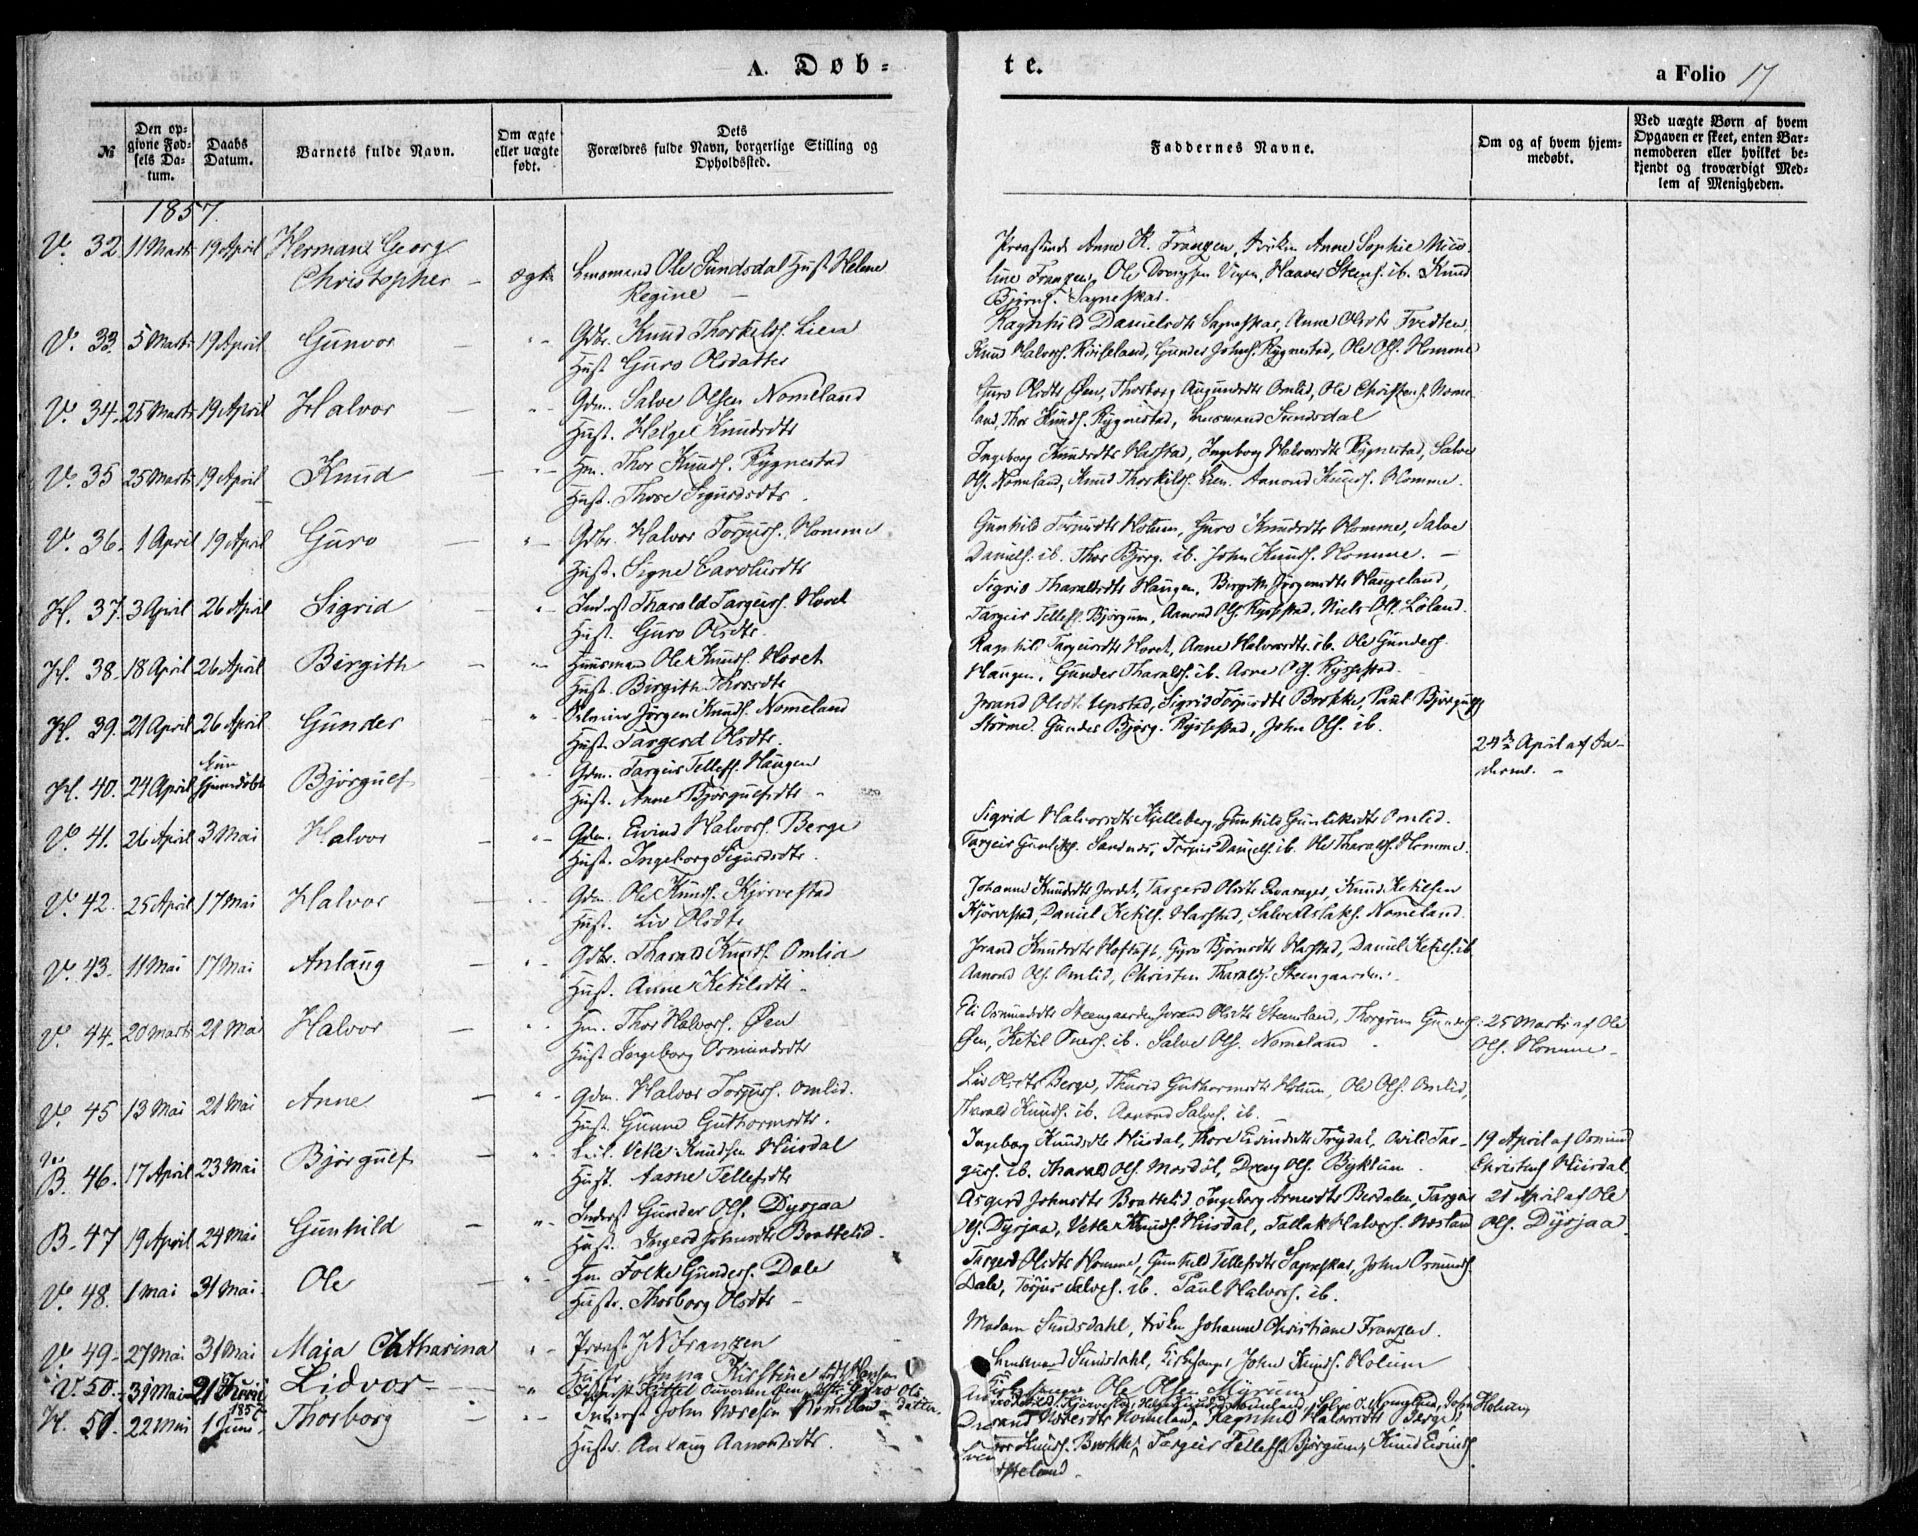 A. Døb-
te.
a Folio 17
№
Den op-
givne Fød-
sels Da-
tum.
Daabs
Datum.
Barnets fulde Navn.
Om ægte
eller uægte
født.
Dets
Forældres fulde Navn, borgerlige Stilling og
Opholdssted.
Faddernes Navne.
Om og af hvem hjem-
medøbt.
Ved uægte Børn af hvem
Opgaven er skeet, enten Bar-
nemoderen eller hvilket be-
kjendt og troværdigt Med-
lem af Menigheden.
1857.
V. 32 11 Marts 19 April Herman Georg
Christopher ægte Lensmand Ole Sundsdal Hust. Helene
Regine
Anne K. Franzen, Anne Sophie Nico-
line Franzen, Ole Haavor Steens. ib. Knud
Bjørns. Sagneskar.
V. 33. 5 Marts 19 April Gunvor Gdbr. Knud Thorkelds. Lien
Hust Guro Olsdatter
Ragnhild Danielsdt Sagneskar, Anne Olsdt Tvedten,
Knud Halvors. Gunder Johns. Rygnestad, Ole Ols. Homme
V. 34. 25 Marts 19 April Halvor Gdm. Salve Olsen Nomeland
Hust. Helge Knudsdt
Guro Olsdt Øen, Thorborg Augundsdt Omlid, Ole Christens. Nome-
land, Thor Knuds. Rygnestad, Lensmand Sundsdal
V. 35 25 Marts 19 April Knud Hm. Thor Knuds. Rygnestad
Hust. Thore Sigurdsdt.
Ingeborg Knudsdt Harstad, Ingeborg Halvorsdt Rygnestad, Salve
Ols. Nomeland, Knud Thorkilds. Lien. Aanond Knuds. Homme.
V. 36. 1 April 19 April Guro Gdbr. Halvor Torjus. Homme
Hust. Signe Carolusdt
Gunhild Torjusdt Holum, Guro Knudsdt Homme, Salve
Daniels. ib. Thor Bjørg. ib. John Knuds. Homme. –
H. 37. 3 April 26 April Sigrid Inderst Tharald Targeirs. Hovet
Hust. Guro Olsdt.
Sigrid Tharaldsdt Haugen, Birgith Jørgensdt Haugeland,
Targeir Tellefs. Bjørgum, Aanond Ols. Rysstad, Niels Ols. Løland.
H. 38. 18 April 26 April Birgith Huusmand Ole Knuds. Hovet
Hust. Birgith Thorsdt
Ragnhild Targeirsdt Hovet, Anne Halvorsdt. ib. Ole Gunders.
Haugen, Gunder Tharalds. ib. Arne Ols. Rysstad.
H. 39. 21 April 26 April Gunder Jørgen Knuds. Nomeland
Hust. Targerd Olsdt.
Jorand Olsdt. Upstad, Sigrid Torjusdt Brokke, Paul Bjørgufs.
Størme. Gunder Bjørg. Rysstad, John Ols. ib.
H. 40. 24 April kun
hjemdøbt Bjørgulf Gdm. Targeir Tellefs. Haugen
Hust. Anne Bjørgulfsdt.
24de April af Fa-
deren. –
V. 41. 26 April 3 Mai Halvor Gdm. Eivind Halvors. Berge
Hust. Ingeborg Sigurdsdt.
Sigrid Halvorsdt Kjelleberg, Gunhild Gunleiksdt Omlid.
Targeir Gunleiks. Sandnes, Torjus Daniels. ib. Ole Tharalds. Homme.
V. 42. 25 April 17 Mai Halvor Gdm. Ole Knuds. Kjørvestad
Hust. Liv Olsdt
Johanne Knudsdt Jordet, Targerd Olsdt Knud Ketilsen
Kjørvestad, Daniel Ketils. Harstad, Salve Aslaks. Nomeland.
V. 43. 11 Mai 17 Mai Anlaug Gdbr. Tharald Knuds. Omlid
Hust. Anne Ketilsdt.
Jorand Knudsdt Hoftuft, Gyro Bjørnsdt Harstad, Daniel Ketils. ib.
Aanond Ols. Omlid, Christen Tharalds. Steengaarden.
V. 44. 20 Marts 21 Mai Halvor Hm. Thor Halvors. Øen
Hust Ingeborg Osmundsdt
Osmundsdt Steengaarden Jorand Olsdt Steensland, Thorgrim Gunders.
Øen, Ketil Ouers. ib. Salve Ols. Nomeland
25 Marts af Ole
Ols. Homme –
V. 45 13 Mai 21 Mai Anne Gdm. Halvor Torjus. Omlid.
Hust. Gunne Guthormsdt.
Liv Olsdt Berge, Thurid Guthormsdt Holum, Ole Ols. Omlid,
Tharald Knuds. ib. Aanond Salves. ib.
B. 46. 17 April 23 Mai Bjørgulf Leil. Vetle Knudsen Husdal
Hust. Aasne Tellefsdt
Ingeborg Knudsdt Husdal, Thore Eivindsdt Trydal, Tar-
geirs. ib. Tharald Ols. Mosdøl, Dreng Ols. Byklum.
19 April af Osmund
Christens. Husdal.
B. 47 19 April 24 Mai Gunhild Inderst Gunder Ols. Dysjaa
Hust. Ingerd Johnsdt Brattelid.
Asgerd Johnsdt Brattelid, Ingeborg Arnesdt Berdalen, Targeir
Ols. Dysjaa, Vetle Knuds. Husdal, Tallak Halvors. Nesland
21 April af Ole
Ols. Dysjaa.
V. 48. 1 Mai 31 Mai. Ole Hm. Folke Gunders. Dale
Hustr. Thorborg Olsdt –
Targerd Olsdt Homme, Gunhild Tellefsdt Sagneskar, John Osmunds.
Dale, Torjus Salves. ib. Paul Halvors. ib.
V. 49. 27 Mai 31 Mai Maja Catharina Provst J N Franzen
Hustr. Anna Kirstine Hansen
Madam Sundsdahl, Johanne Christiane Franzen.
Lensmand Sundsdahl, Kirkesanger John Knuds. Holum
Ole Olsen Myrum
V. 50. 31 Mai 21 Juni Lidvor Inderst Kittel Ouversen Øen, Gyro Ols-
datter.
H. 51. 22 Mai 1 Juni 1857 Thorborg Inderst John Nomeland
Hustr. Anlaug Aanondsdt.
Nomeland, Ragnhild Halvorsdt Berge,
Knuds. Brokke, Targeir Tellefs. Bjørgum, Knud Eivinds.
Helland.